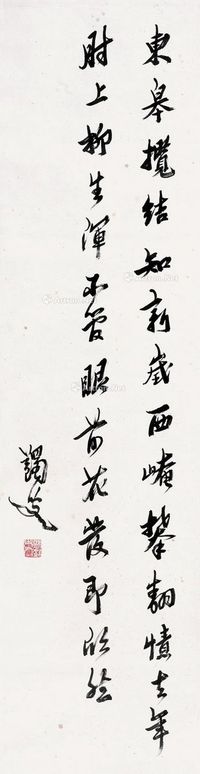 東皋攬結知新歲西崦攀翻憶去年
肘上柳生渾不管眼前花發即欣然
蠲叟